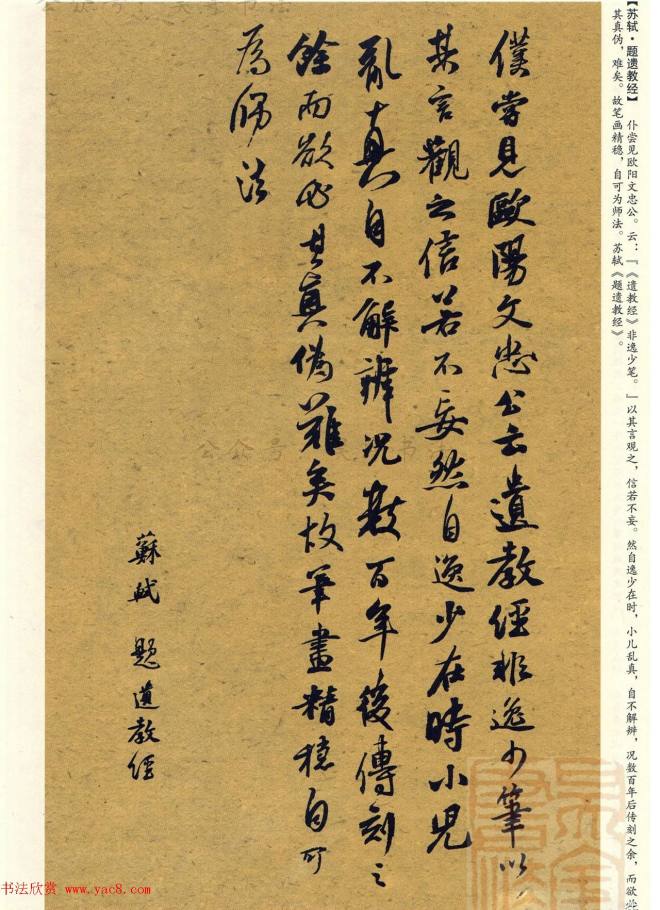 【苏轼·题遗教经】 仆尝见欧阳文忠公。云：「《遗教经》非逸少笔。」以其言观之，信若不妄。然自逸少在时，小儿乱真，自不解辨，况数百年后传刻之余，而欲必
其真伪，难矣。故笔画精稳，自可为师法。苏轼《题遗教经》。
僕嘗見歐陽文忠公云遺教經非逸少筆以
其言觀之信若不妄然自逸少在時小兒
亂真自不解辨况數百年後傳刻之
餘而欲必其真偽難矣故筆畫精穩自可
為師法
蘇軾 題遺教經
书法欣赏 www.yac8.com